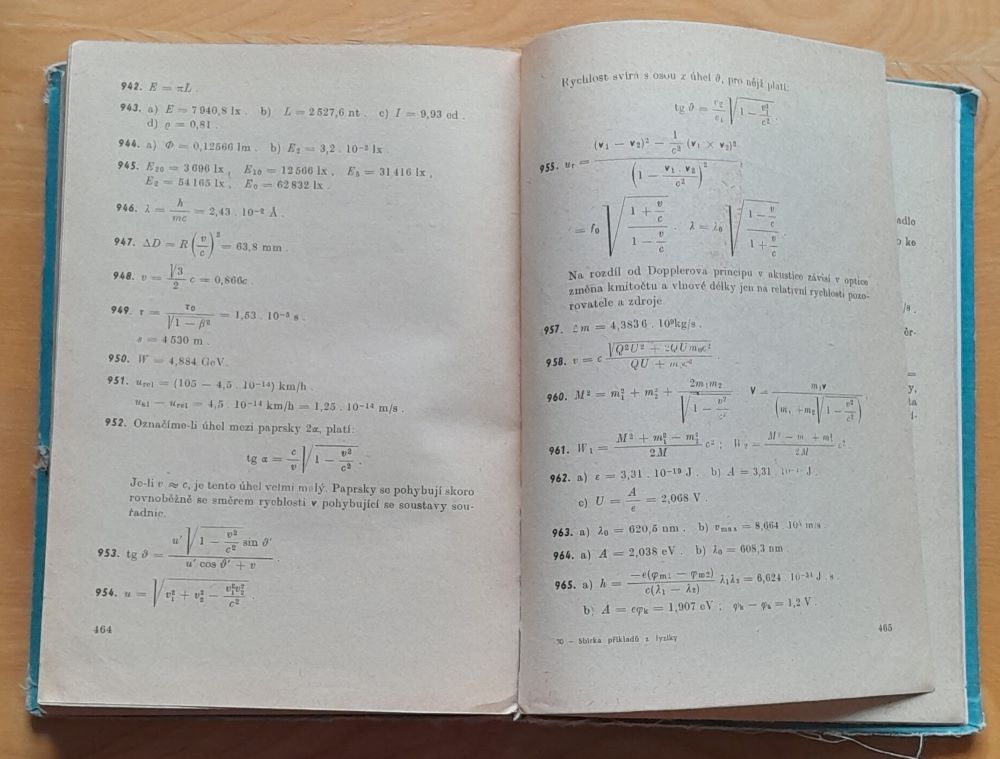 942. E = πL .
943. a) E = 7 940,8 lx . b) L = 2 527,6 nt . c) I = 9,93 cd .
d) ϱ = 0,81 .
944. a) Φ = 0,12566 lm . b) E₂ = 3,2 . 10⁻² lx .
945. E₂₀ = 3 696 lx , E₁₀ = 12 566 lx , E₅ = 31 416 lx ,
E₂ = 54 165 lx , E₀ = 62 832 lx .
946. λ = h/mc = 2,43 . 10⁻² Å .
947. ΔD = R (v/c)² = 63,8 mm .
948. v = √3/2 c = 0,866c .
949. τ = τ₀/√(1 − β²) = 1,53 . 10⁻⁵ s .
s = 4 530 m .
950. W = 4,884 GeV .
951. u_rel = (105 − 4,5 . 10⁻¹⁴) km/h .
u_kl − u_rel = 4,5 . 10⁻¹⁴ km/h = 1,25 . 10⁻¹⁴ m/s .
952. Označíme-li úhel mezi paprsky 2α, platí:
tg α = c/v √(1 − v²/c²) .
Je-li v ≈ c, je tento úhel velmi malý. Paprsky se pohybují skoro
rovnoběžně se směrem rychlosti v pohybující se soustavy sou-
řadnic.
953. tg ϑ = u′ √(1 − v²/c²) sin ϑ′ / (u′ cos ϑ′ + v) .
954. u = √(v₁² + v₂² − v₁²v₂²/c²) .
464
Rychlost svírá s osou x úhel ϑ, pro nějž platí:
tg ϑ = v₂/v₁ √(1 − v₁²/c²) .
955. u_r = ((v₁ − v₂)² − 1/c² (v₁ × v₂)²) / (1 − v₁ . v₂/c²)² .
= f₀ √((1 + v/c)/(1 − v/c)) . λ = λ₀ √((1 − v/c)/(1 + v/c))
Na rozdíl od Dopplerova principu v akustice závisí v optice
změna kmitočtu a vlnové délky jen na relativní rychlosti pozo-
rovatele a zdroje
957. m = 4,3836 . 10⁹ kg/s .
958. v = c √(Q²U² + 2QUm₀c²) / (QU + m₀c²) .
960. M² = m₁² + m₂² + 2m₁m₂/√(1 − v²/c²) V = m₁v/(m₁ + m₂ √(1 − v²/c²)) .
961. W₁ = (M² + m₁² − m₂²)/2M c² ; W₂ = (M² − m₁² + m₂²)/2M c² .
962. a) ε = 3,31 . 10⁻¹⁹ J . b) A = 3,31 . 10⁻¹⁹ J .
c) U = A/e = 2,068 V .
963. a) λ₀ = 620,5 nm . b) v_max = 8,664 m/s
964. a) A = 2,038 eV . b) λ₀ = 608,3 nm
965. a) h = −e(φ_m1 − φ_m2)/c(λ₁ − λ₂) λ₁λ₂ = 6,624 . 10⁻³⁴ J . s .
b) A = eφ_k = 1,907 eV ; φ_k − φ_a = 1,2 V .
30 – Sbírka příkladů z fyziky
465